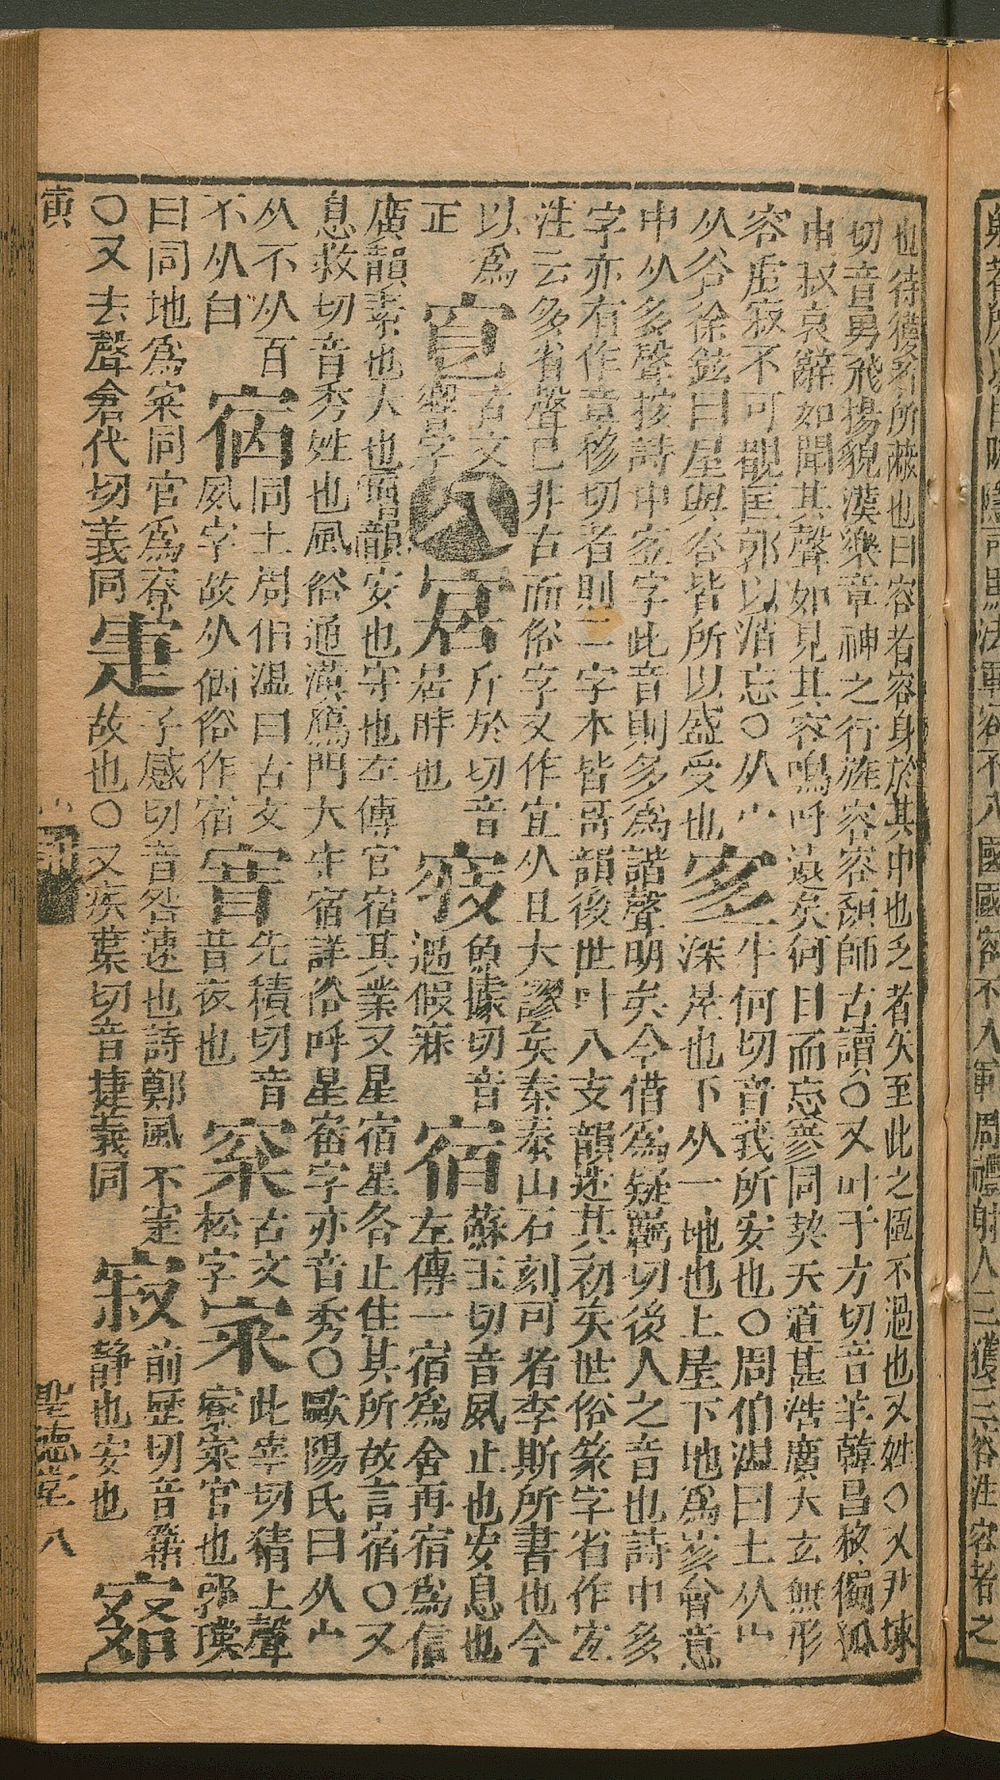 也待獲者所蔽也曰容者容身於其中也乏者矢至此之匱不過也又姓〇又尹竦
切音勇飛揚貌漢樂章神之行旌容容顏師古讀〇又叶于方切音羊韓昌黎獨孤
申叔哀辭如聞其聲如見其容嗚呼遠矣何日而忘參同契天道甚浩廣大玄無形
容虛寂不可覩匡郭以消忘〇从宀
从谷徐鉉曰屋與谷皆所以盛受也
宐
牛何切音莪所安也〇周伯溫曰土从宀
深屋也下从一地也上屋下地爲宐會意
中从多聲按詩中宐字此音則多爲諧聲明矣今借爲疑羈切後人之音也詩中多
字亦有作章移切者則二字本皆哥韻後世叶八支韻迷其初矣世俗篆字省作宐
注云多省聲已非古而俗字又作宜从且大謬矣秦泰山石刻可者李斯所書也今
以爲
正
古文
響字
八
㝒
斤於切音
居時也
㝥
魚據切音
過假寐
宿
蘇玉切音夙止也安息也
左傳一宿爲舍再宿爲信
廣韻素也大也增韻安也守也左傳官宿其業又星宿星各止住其所故言宿〇又
息救切音秀姓也風俗通漢鴈門大守宿詳俗呼星宿字亦音秀〇歐陽氏曰从宀
从不从百
不从白
𡪢
同上周伯溫曰古文
夙字故从㐁俗作宿
㝛
先積切音
昔夜也
䆗
古文
松字
寀
此宰切猜上聲
寮寀官也郭璞
曰同地爲寀同官爲寮
〇又去聲倉代切義同
寁
子感切音昝速也詩鄭風不寁
故也〇又疾葉切音捷義同
寂
前歷切音籍
靜也安也
寅
聖德堂 八